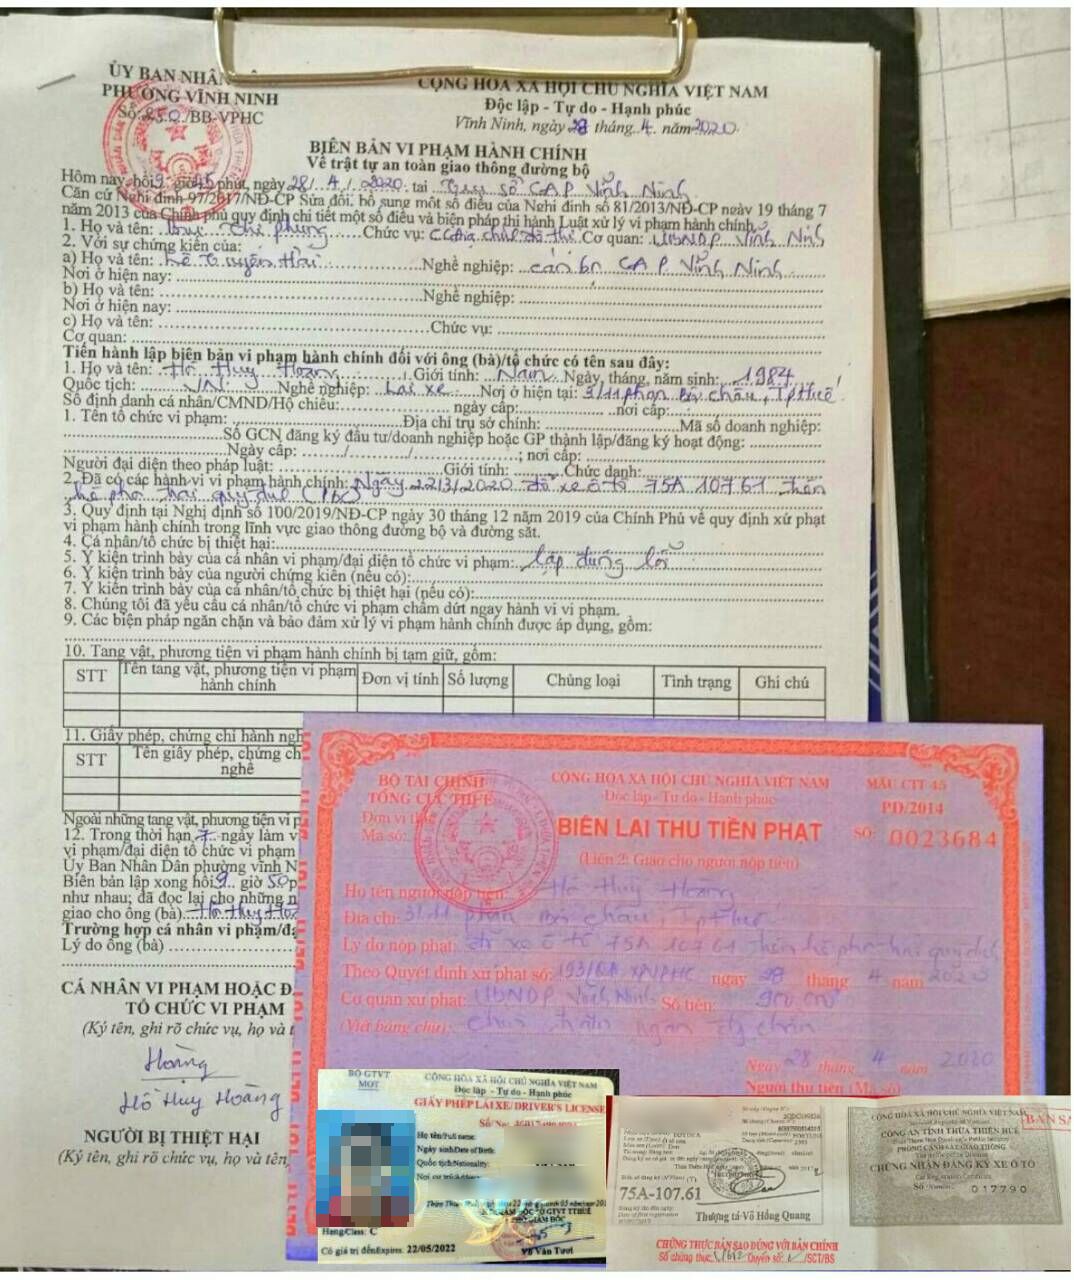 ỦY BAN NHÂN
PHƯỜNG VĨNH NINH
Số: 850/BB-VPHC
CỘNG HÒA XÃ HỘI CHỦ NGHĨA VIỆT NAM
Độc lập - Tự do - Hạnh phúc
Vĩnh Ninh, ngày 28 tháng 4 năm 2020
BIÊN BẢN VI PHẠM HÀNH CHÍNH
Về trật tự an toàn giao thông đường bộ
Hôm nay, hồi 9 giờ 45 phút, ngày 28/4/2020 tại Trụ sở CAP Vĩnh Ninh
Căn cứ Nghị định 97/2017/NĐ-CP Sửa đổi, bổ sung một số điều của Nghị định số 81/2013/NĐ-CP ngày 19 tháng 7
năm 2013 của Chính phủ quy định chi tiết một số điều và biện pháp thi hành Luật xử lý vi phạm hành chính.
1. Họ và tên: Chí Chức vụ: Cơ quan: UBNDP Vĩnh Ninh
2. Với sự chứng kiến của:
a) Họ và tên: Nghề nghiệp: cán bộ CAP Vĩnh Ninh
Nơi ở hiện nay:
b) Họ và tên: Nghề nghiệp:
Nơi ở hiện nay:
c) Họ và tên: Chức vụ:
Cơ quan:
Tiến hành lập biên bản vi phạm hành chính đối với ông (bà)/tổ chức có tên sau đây:
1. Họ và tên: Hồ Huy Hoàng Giới tính: Nam Ngày, tháng, năm sinh: 1984
Quốc tịch: VN Nghề nghiệp: Lái xe Nơi ở hiện tại: 3/11 phan Bội Châu, Tp Huế
Số định danh cá nhân/CMND/Hộ chiếu: ngày cấp: nơi cấp:
1. Tên tổ chức vi phạm: Địa chỉ trụ sở chính: Mã số doanh nghiệp:
Số GCN đăng ký đầu tư/doanh nghiệp hoặc GP thành lập/đăng ký hoạt động:
Ngày cấp: / / ; nơi cấp:
Người đại diện theo pháp luật: Giới tính: Chức danh:
2. Đã có các hành vi vi phạm hành chính: Ngày 22/3/2020 đỗ xe ô tô 75A 107.61 trên
hè phố trái quy định
3. Quy định tại Nghị định số 100/2019/NĐ-CP ngày 30 tháng 12 năm 2019 của Chính Phủ về quy định xử phạt
vi phạm hành chính trong lĩnh vực giao thông đường bộ và đường sắt.
4. Cá nhân/tổ chức bị thiệt hại:
5. Ý kiến trình bày của cá nhân vi phạm/đại diện tổ chức vi phạm: lập đúng lỗi
6. Ý kiến trình bày của người chứng kiến (nếu có):
7. Ý kiến trình bày của cá nhân/tổ chức bị thiệt hại (nếu có):
8. Chúng tôi đã yêu cầu cá nhân/tổ chức vi phạm chấm dứt ngay hành vi vi phạm.
9. Các biện pháp ngăn chặn và bảo đảm xử lý vi phạm hành chính được áp dụng, gồm:
10. Tang vật, phương tiện vi phạm hành chính bị tạm giữ, gồm:
STT Tên tang vật, phương tiện vi phạm hành chính Đơn vị tính Số lượng Chủng loại Tình trạng Ghi chú
11. Giấy phép, chứng chỉ hành ngh
STT Tên giấy phép, chứng ch
nghề
Ngoài những tang vật, phương tiện vi p
12. Trong thời hạn 7 ngày làm v
vi phạm/đại diện tổ chức vi phạm
Ủy Ban Nhân Dân phường vĩnh N
Biên bản lập xong hồi 9 giờ 50 p
như nhau; đã đọc lại cho những n
giao cho ông (bà) Hồ Huy Hoà
Trường hợp cá nhân vi phạm/đạ
Lý do ông (bà)
CÁ NHÂN VI PHẠM HOẶC Đ
TỔ CHỨC VI PHẠM
(Ký tên, ghi rõ chức vụ, họ và t
Hoàng
Hồ Huy Hoàng
NGƯỜI BỊ THIỆT HẠI
(Ký tên, ghi rõ chức vụ, họ và tên,
BỘ TÀI CHÍNH
TỔNG CỤC THUẾ
Đơn vị thu
Mã số:
CỘNG HÒA XÃ HỘI CHỦ NGHĨA VIỆT NAM
Độc lập - Tự do - Hạnh phúc
BIÊN LAI THU TIỀN PHẠT
(Liên 2: Giao cho người nộp tiền)
MẪU CTT 45
PD/2014
Số: 0023684
Họ tên người nộp tiền: Hồ Huy Hoàng
Địa chỉ: 3/11 phan Bội Châu, Tp Huế
Lý do nộp phạt: đỗ xe ô tô 75A 107.61 trên hè phố trái quy định
Theo Quyết định xử phạt số: 193/QĐ XPVPHC ngày 28 tháng 4 năm 2020
Cơ quan xử phạt: UBNDP Vĩnh Ninh Số tiền: 900.000
(Viết bằng chữ): Chín trăm ngàn đồng chẵn
Ngày 28 4 2020
Người thu tiền
BỘ GTVT
MOT
CỘNG HÒA XÃ HỘI CHỦ NGHĨA VIỆT NAM
Độc lập - Tự do - Hạnh phúc
GIẤY PHÉP LÁI XE/DRIVER'S LICENSE
Số/No:
Họ tên/Full name:
Ngày sinh/Date of Birth:
Quốc tịch/Nationality:
Nơi cư trú
Hạng/Class: C
Có giá trị đến/Expires: 22/05/2022
Võ Văn Tươi
75A-107.61
Thượng tá Võ Hồng Quang
CHỨNG THỰC BẢN SAO ĐÚNG VỚI BẢN CHÍNH
Số chứng thực Quyển số /SCT/BS
CỘNG HÒA XÃ HỘI CHỦ NGHĨA VIỆT NAM
BẢN SA
CÔNG AN TỈNH THỪA THIÊN HUẾ
PHÒNG CẢNH SÁT GIAO THÔNG
CHỨNG NHẬN ĐĂNG KÝ XE Ô TÔ
Số 017790